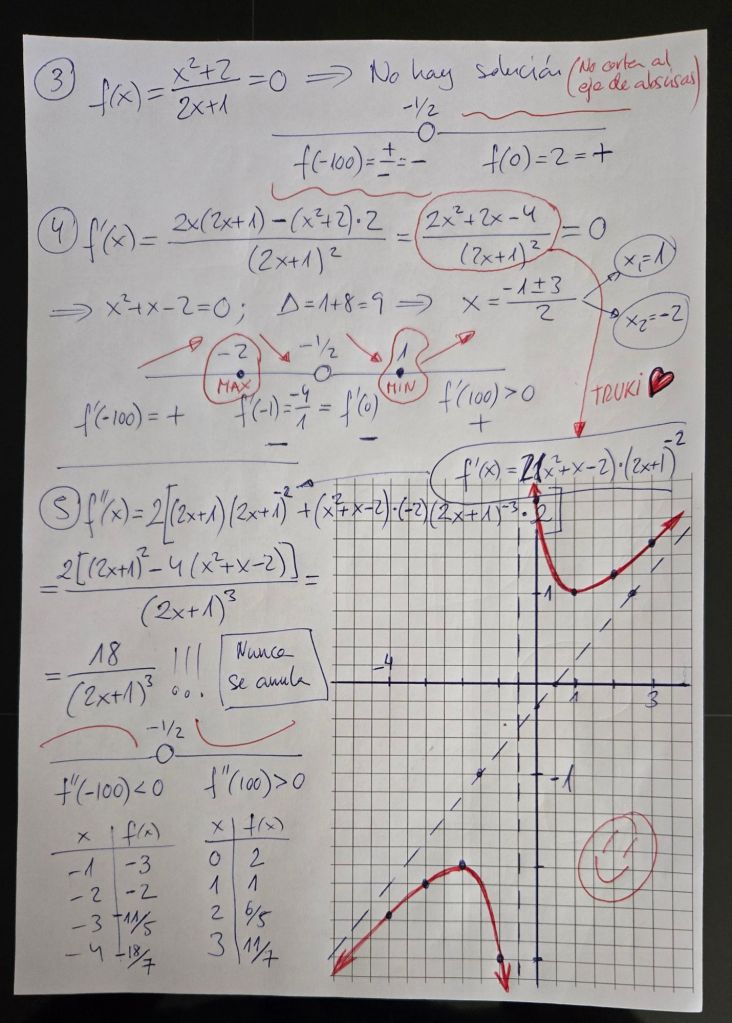 ③ f(x) = (x²+2)/(2x+1) = 0 ⟹ No hay solución (No corta al eje de abscisas)
-1/2
f(-100) = +/- = - f(0) = 2 = +
④ f'(x) = (2x(2x+1) - (x²+2)·2)/(2x+1)² = (2x²+2x-4)/(2x+1)² = 0
⟹ x²+x-2=0; Δ=1+8=9 ⟹ x = (-1±3)/2 x₁=1 x₂=-2
-2 -1/2 1
MAX MIN
f'(-100) = + f'(-1) = -4/1 = f'(0) f'(100) > 0
- - +
TRUKI ♥
f'(x) = 2(x²+x-2)·(2x+1)⁻²
⑤ f''(x) = 2[(2x+1)(2x+1)⁻² + (x²+x-2)·(-2)(2x+1)⁻³·2]
= 2[(2x+1)² - 4(x²+x-2)]/(2x+1)³ =
= 18/(2x+1)³ !!! Nunca se anula
-1/2
f''(-100) < 0 f''(100) > 0
x f(x) x f(x)
-1 -3 0 2
-2 -2 1 1
-3 -11/5 2 6/5
-4 -18/7 3 11/7
1
-4 1 3
-1